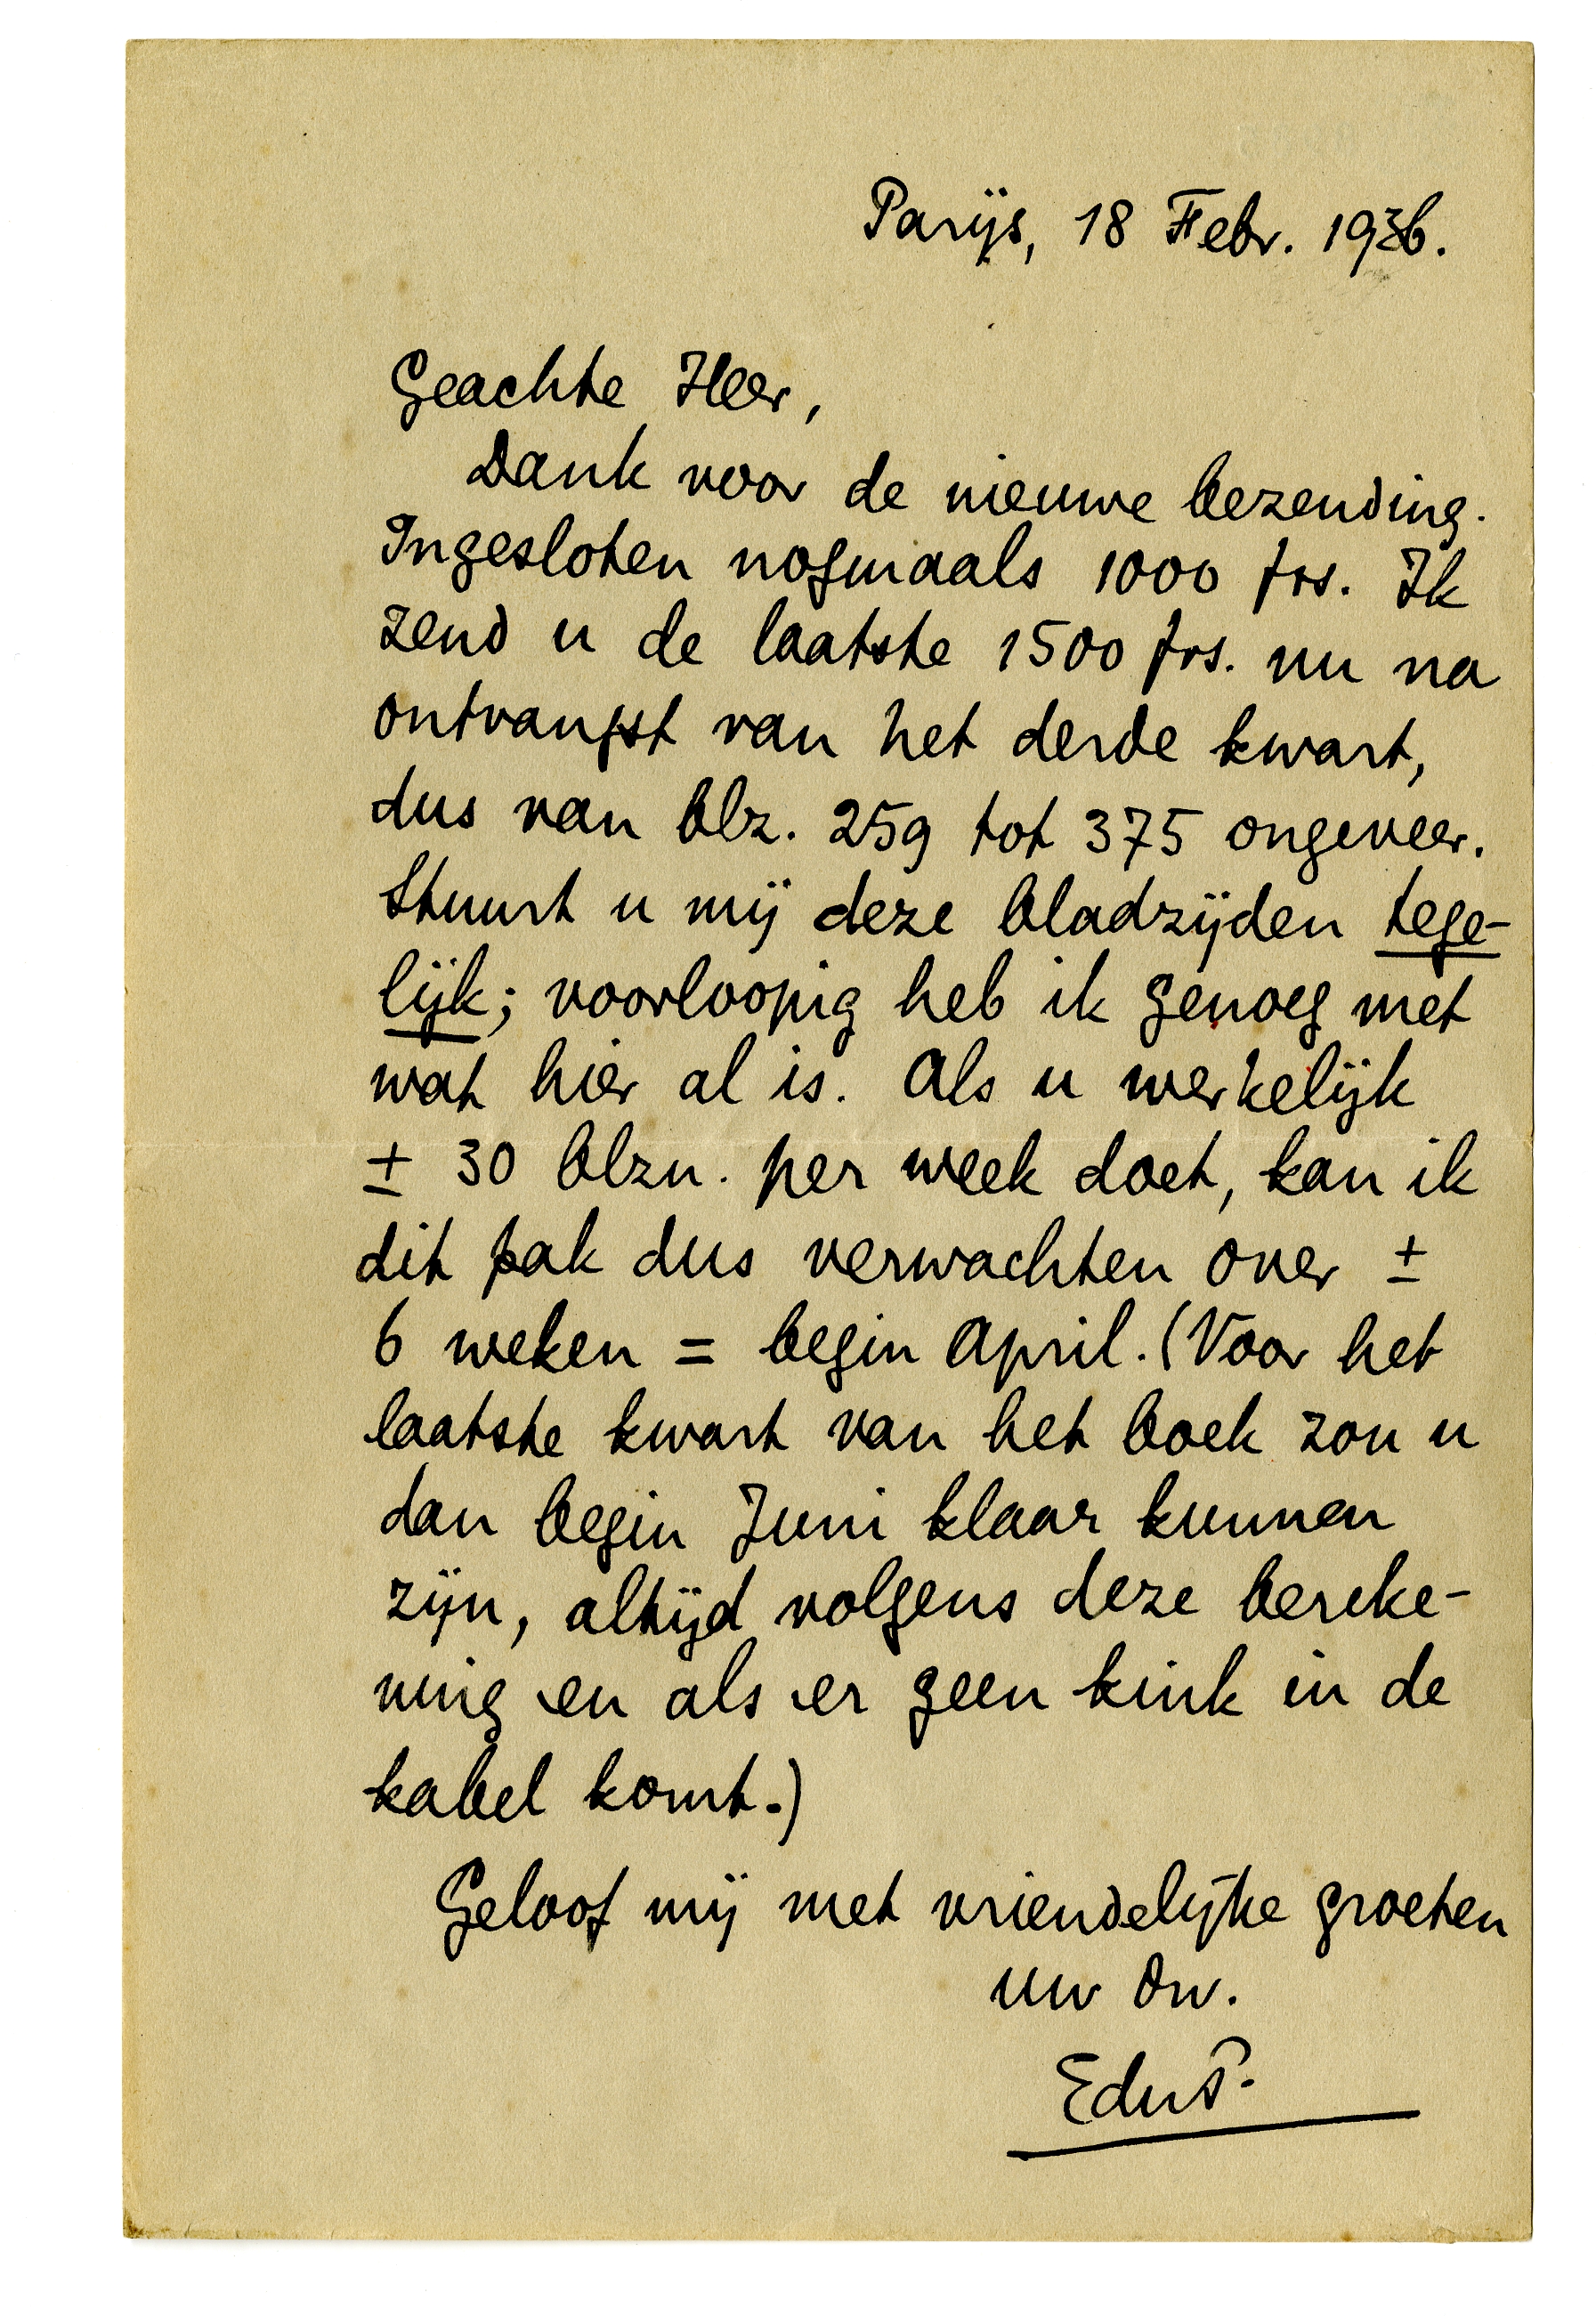 Parijs, 18 Febr. 1936.
Geachte Heer,
Dank voor de nieuwe bezending.
Ingesloten nogmaals 1000 frs. Ik
zend u de laatste 1500 frs. nu na
ontvangst van het derde kwart,
dus van blz. 259 tot 375 ongeveer.
Stuurt u mij deze bladzijden tege-
lijk; voorloopig heb ik genoeg met
wat hier al is. Als u werkelijk
± 30 blzn. per week doet, kan ik
dit pak dus verwachten over ±
6 weken = begin April. (Voor het
laatste kwart van het boek zou u
dan begin Juni klaar kunnen
zijn, altijd volgens deze bereke-
ning en als er geen kink in de
kabel komt.)
Geloof mij met vriendelijke groeten
uw dw.
EduP.